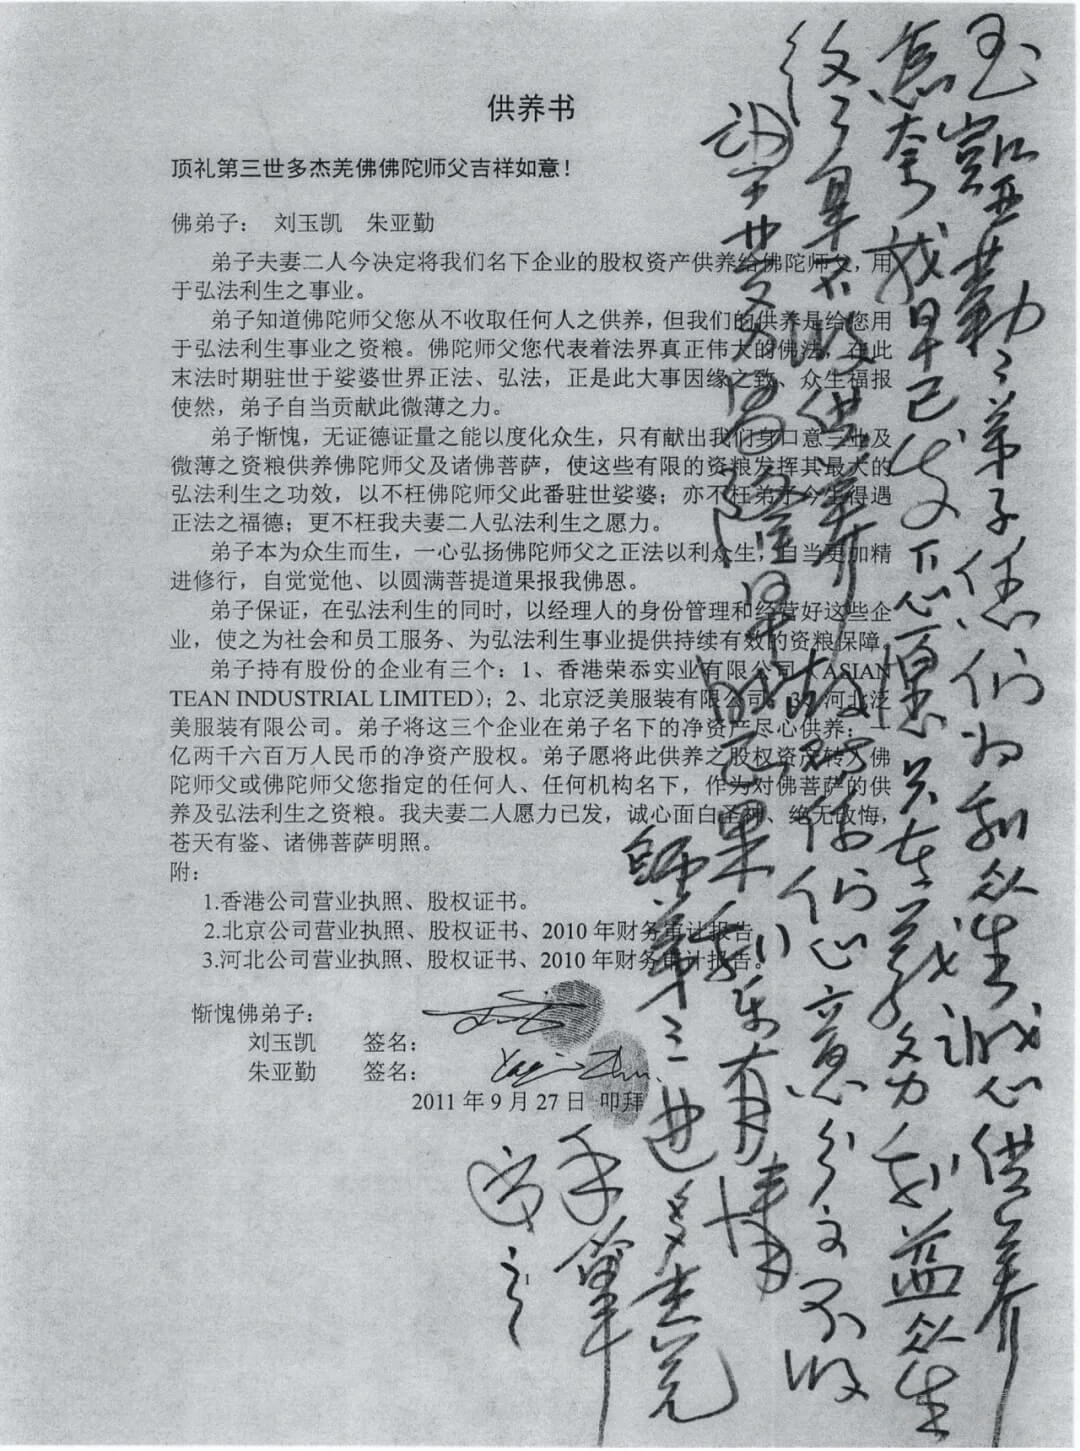 供养书
顶礼第三世多杰羌佛佛陀师父吉祥如意！
佛弟子： 刘玉凯 朱亚勤
弟子夫妻二人今决定将我们名下企业的股权资产供养给佛陀师父，用
于弘法利生之事业。
弟子知道佛陀师父您从不收取任何人之供养，但我们的供养是给您用
于弘法利生事业之资粮。佛陀师父您代表着法界真正伟大的佛法，在此
末法时期驻世于娑婆世界正法、弘法，正是此大事因缘之致、众生福报
使然，弟子自当贡献此微薄之力。
弟子惭愧，无证德证量之能以度化众生，只有献出我们身口意三业及
微薄之资粮供养佛陀师父及诸佛菩萨，使这些有限的资粮发挥其最大的
弘法利生之功效，以不枉佛陀师父此番驻世娑婆；亦不枉弟子今生得遇
正法之福德；更不枉我夫妻二人弘法利生之愿力。
弟子本为众生而生，一心弘扬佛陀师父之正法以利众生，自当更加精
进修行，自觉觉他、以圆满菩提道果报我佛恩。
弟子保证，在弘法利生的同时，以经理人的身份管理和经营好这些企
业，使之为社会和员工服务、为弘法利生事业提供持续有效的资粮保障。
弟子持有股份的企业有三个：1、香港荣忝实业有限公司（ASIAN
TEAN INDUSTRIAL LIMITED）；2、北京泛美服装有限公司；3、河北泛
美服装有限公司。弟子将这三个企业在弟子名下的净资产尽心供养：一
亿两千六百万人民币的净资产股权。弟子愿将此供养之股权资产转入佛
陀师父或佛陀师父您指定的任何人、任何机构名下，作为对佛菩萨的供
养及弘法利生之资粮。我夫妻二人愿力已发，诚心面白圣神、绝无改悔，
苍天有鉴、诸佛菩萨明照。
附：
1.香港公司营业执照、股权证书。
2.北京公司营业执照、股权证书、2010 年财务审计报告。
3.河北公司营业执照、股权证书、2010 年财务审计报告。
惭愧佛弟子：
刘玉凯 签名：
朱亚勤 签名： Yaqin Zhu
2011 年 9 月 27 日 叩拜
玉凱亚勤二弟子您们为利众生诚心供养
怎奈我早已发下心愿只在义务利益众生
终了身不收供养 你们心意分文不收
望 昌隆早成正果利乐有情
师第三世多杰羌